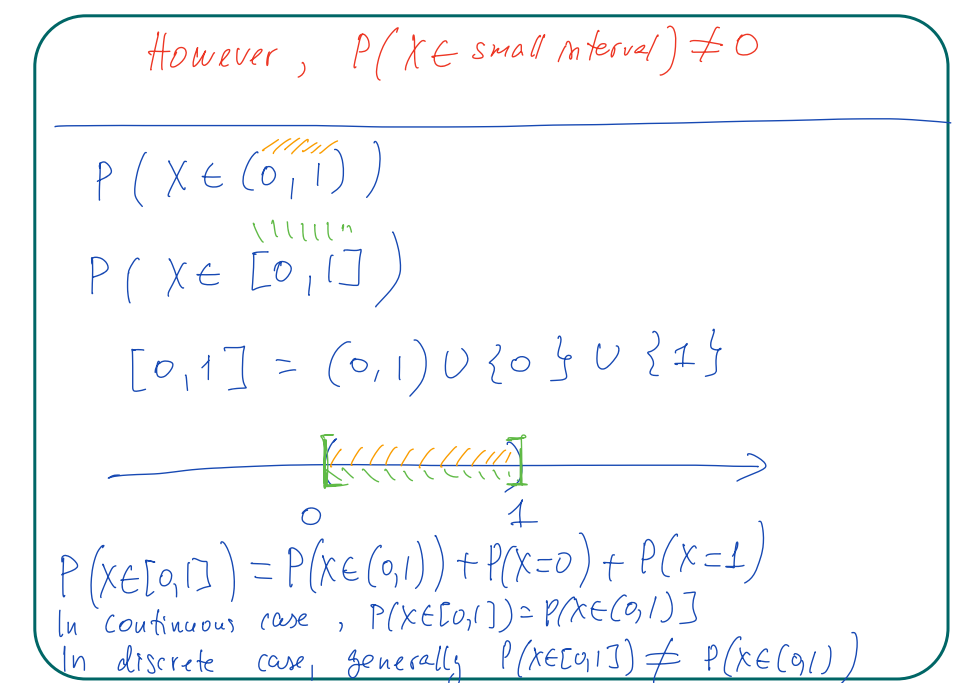 However, P(X ∈ small interval) ≠ 0
P(X ∈ (0,1))
P(X ∈ [0,1])
[0,1] = (0,1) ∪ {0} ∪ {1}
0 1
P(X∈[0,1]) = P(X∈(0,1)) + P(X=0) + P(X=1)
In continuous case, P(X∈[0,1]) = P(X∈(0,1)]
In discrete case, generally P(X∈[0,1]) ≠ P(X∈(0,1))